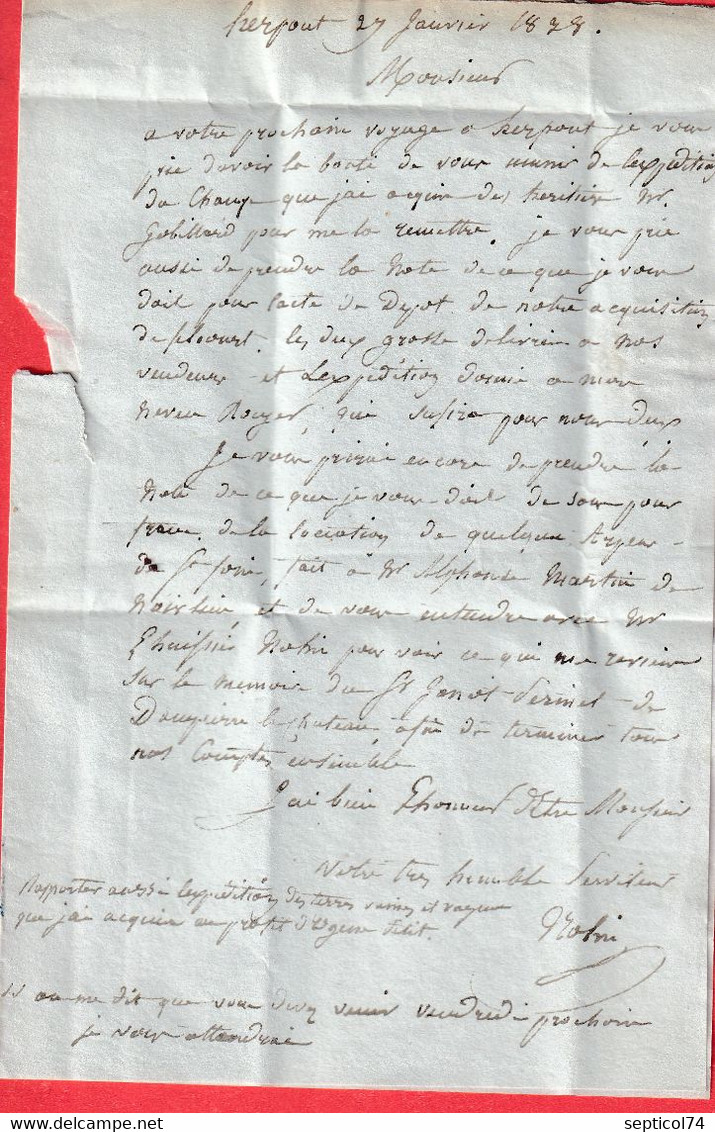 herpont 27 Janvier 1828.
Monsieur
a votre prochain voyage a herpont je vous
prie davoir la bonté de vous munir de lexpedition
du Change que jai acquie des heritier Mr
Gobillard pour me la remettre. je vous prie
aussi de prendre la Note de ce que je vous
doit pour lacte de Depot de notre acquisition
de les deux grosse delivrée a nos
vendeurs et Lexpedition donné a mon
neveu Rouyer, qui sufira pour nous deux
Je vous prirai encore de prendre la
Note de ce que je vous doit de son pour
frais de la location de quelque
de fait à Mr Alphonse Martin de
et de vous entendre avec Mr
pour voir ce qui me revien
sur le memoire du Sr de
Dampierre le chateau afin de terminer tous
nos Comptes ensemble
J'ai bien L'honneur d'Etre Monsieur
Votre tres humble Serviteur
Rapporter aussi lexpedition des terres vaines et vagues
que jai acquie au profit d'Ugene Petit.
Nolin
on me dit que vous devez venir vendredi prochain
je vous attendrai
septicol74